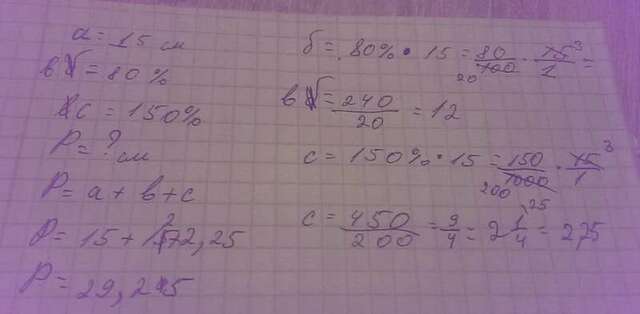 a = 15 см
в = 80%
c = 150%
P = ? см
P = a + b + c
P = 15 + 12 + 2,25
P = 29,25
б = 80% • 15 = 80/100 • 15/1 =
20 3
в = 240/20 = 12
c = 150% • 15 = 150/1000 • 15/1
200 3
c = 450/200 = 9/4 = 2 1/4 = 2,25
,25